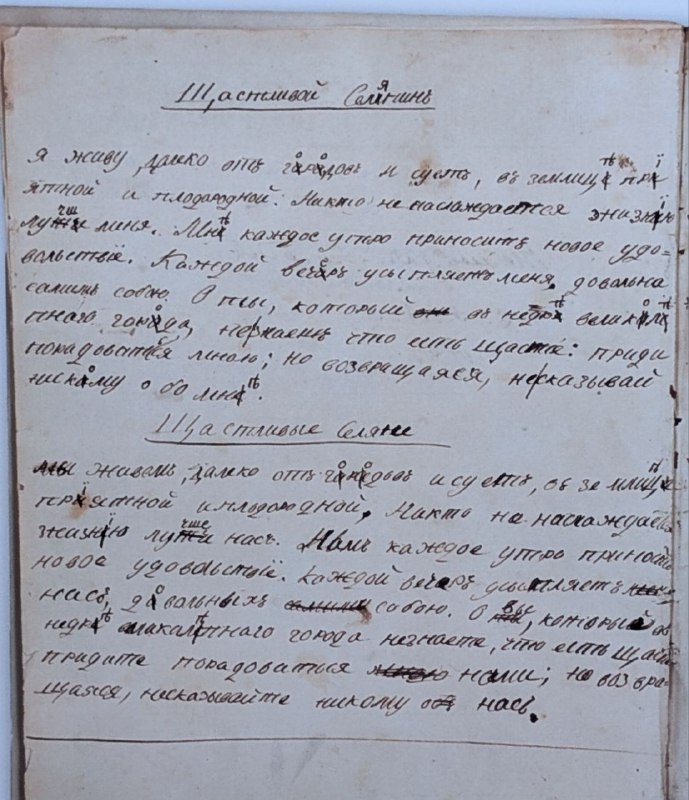 Щастливой Селянинъ
я живу далѣко отъ городовъ и суетъ, въ землицѣ прі
ятной и плодородной. Никто не наслаждается жизнію
лучше меня. Мнѣ каждое утро приноситъ новое удо-
вольствіе. Каждой вечеръ усыпляетъ меня, довольна
самимъ собою. О ты, который въ недрѣ великолѣ
пнаго города, незнаешъ что есть щастіе: приди
порадоваться мною; но возвращаяся, несказывай
никому о бо мнѣ.
Щастливые Селяне
Мы живемъ, далеко отъ городовъ и суетъ, въ землицѣ
пріятной и плодородной, Никто не наслаждается
жизнію лучше насъ. Намъ каждое утро приноситъ
новое удовольствіе. Каждой вечеръ усыпляетъ
насъ, довольныхъ собою. О вы, которыи въ
недрѣ города незнаете, что есть щастіе
придите порадоваться нами; но возвра-
щаяся, несказывайте никому о насъ.